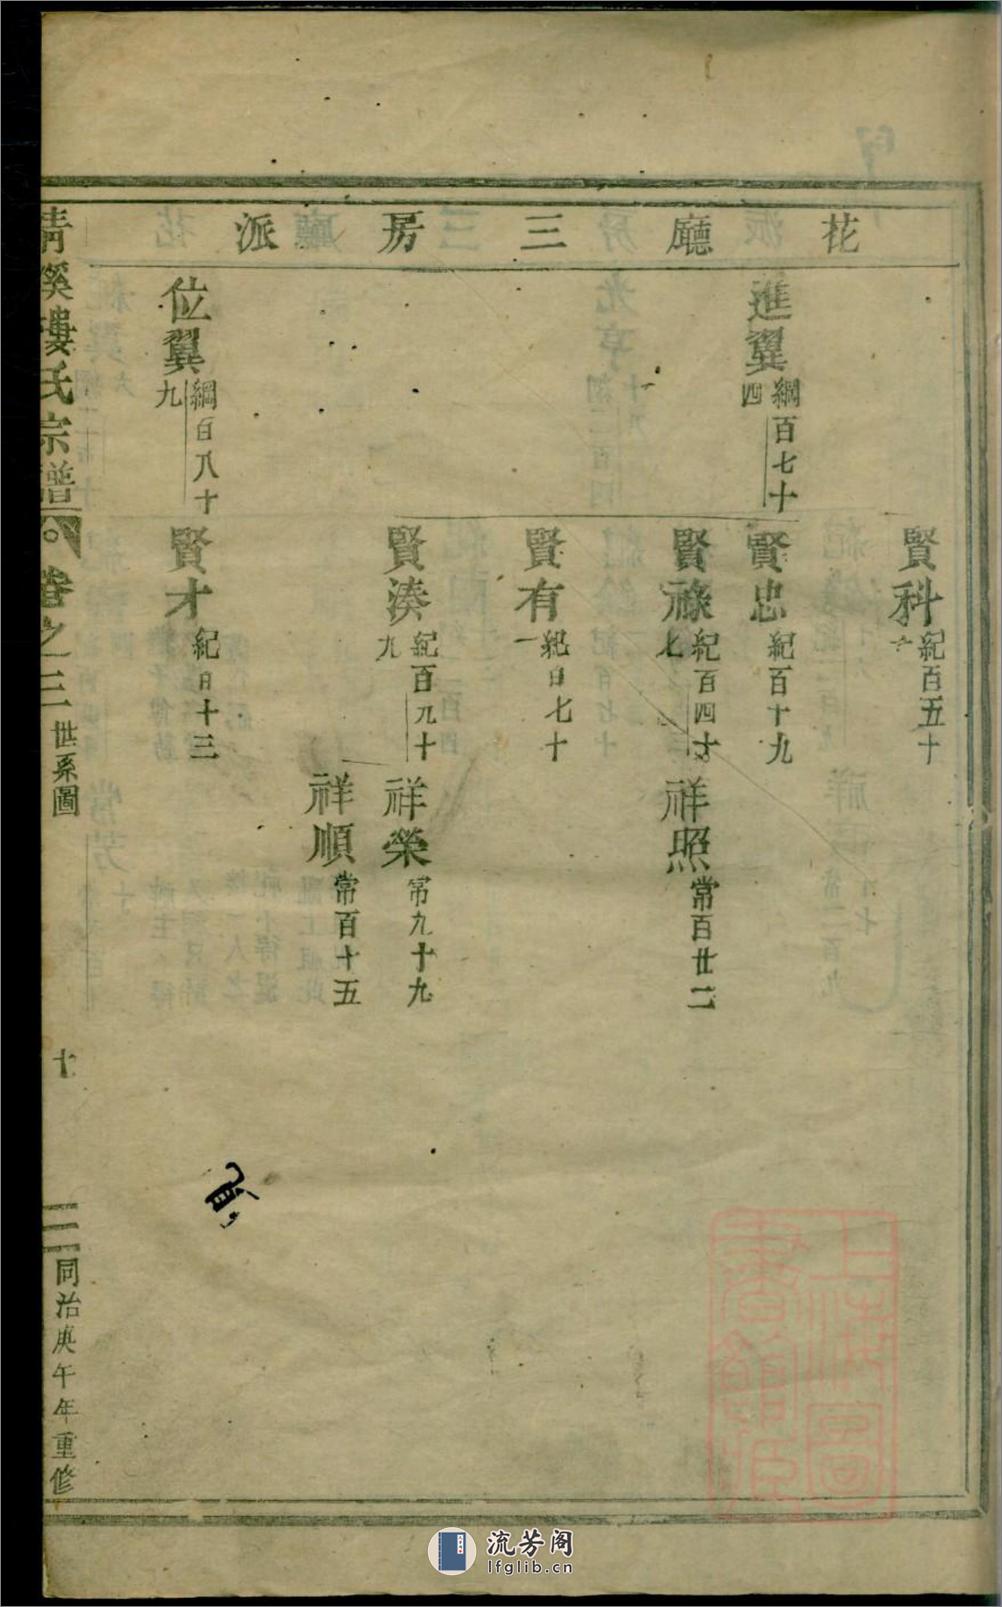 花廳三房派
進翼 綱百七十四
位翼 綱百八十九
賢科 紀百五十
賢忠 紀百十九
賢祿 紀百四十七
賢有 紀百七十一
賢湊 紀百九十九
賢才 紀百十三
祥照 常百廿二
祥榮 常九十九
祥順 常百十五
清溪婁氏宗譜 卷之三 世系圖 十 同治庚午年重修
上海圖書館藏
流芳阁
lfglib.cn